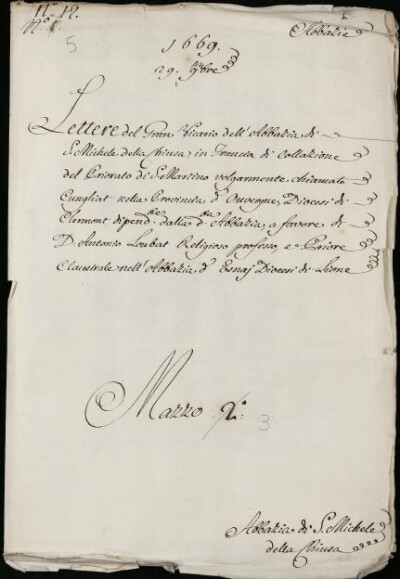 N.º 12.
N.º 1.
Abbazie
5
1669.
29. 9bre
Lettere del Gran Vicario dell'Abbazia di
S. Michele della Chiusa, in Francia di Collazione
del Priorato di S. Martino volgarmente chiamato
Cungliat nella Provincia d'Ouvergne, Diocesi di
Clermont dipend.te dalla d.a Abbazia, a favore di
D. Antonio Loubat Religioso professo, e Priore
Claustrale nell'Abbazia d'Esnaj Diocesi di Lione
Mazzo 2.º
3
Abbazia di S. Michele
della Chiusa